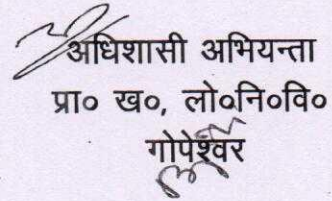 अधिशासी अभियन्ता
प्रा० ख०, लो०नि०वि०
गोपेश्वर